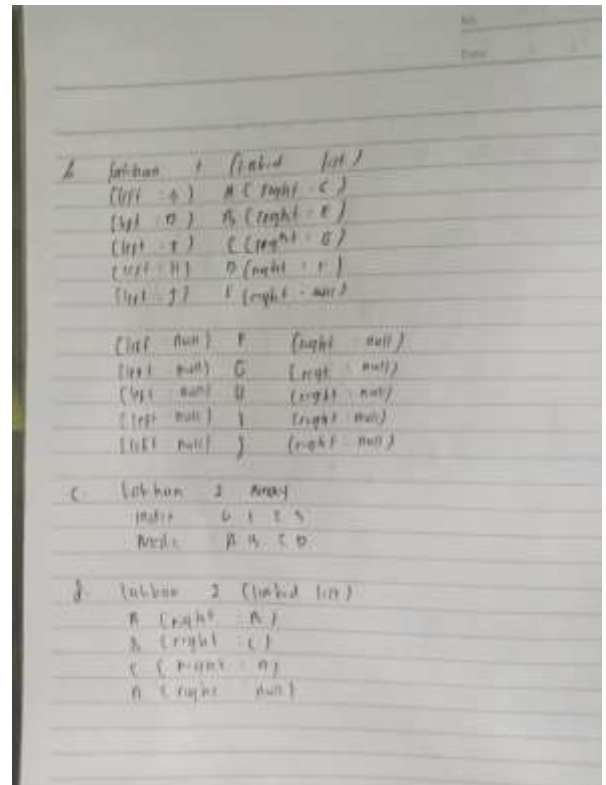 b. Latihan 1 (linked list)
(left : ) A (right : C)
(left : D) B (right : E)
(left : F) C (right : G)
(left : H) D (right : I)
(left : J) E (right : null)
(left null) F (right null)
(left null) G (right : null)
(left null) H (right : null)
(left null) I (right : null)
(left null) J (right : null)
c. Latihan 2 Array
Index 0 1 2 3
Node A B C D
d. Latihan 2 (linked list)
A (right : B)
B (right : C)
C (right : D)
D (right null)